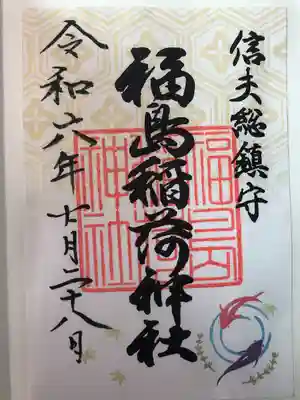 信夫総鎮守
福島稲荷神社
令和六年十月二十八日
福島稲荷神社